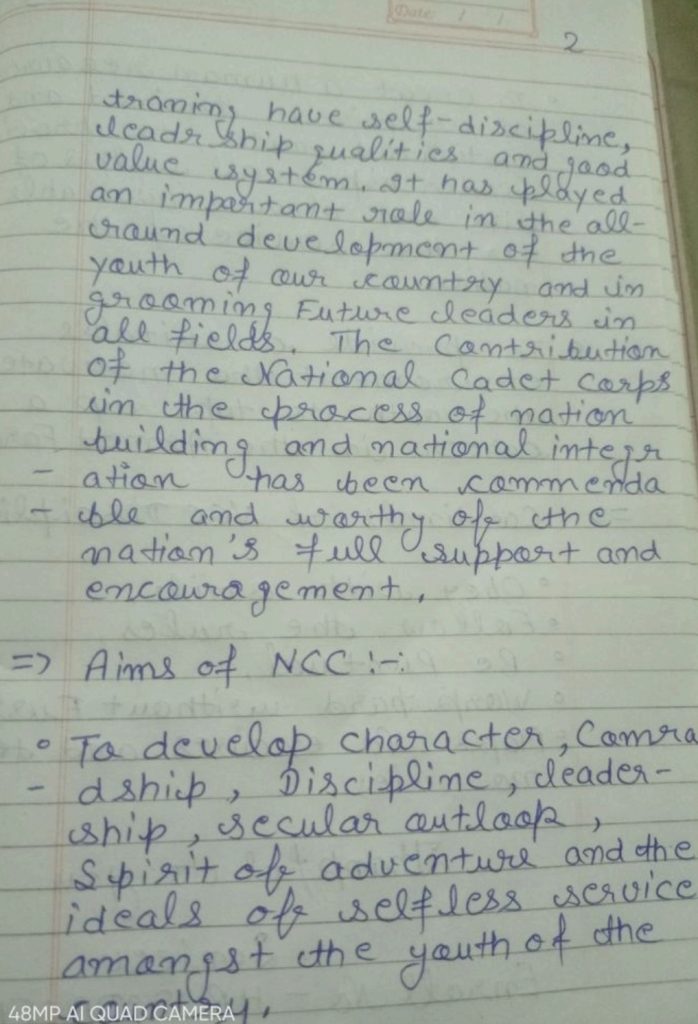 Date / /
2
traning have self-discipline,
leadrship qualities and good
value system. It has played
an important role in the all-
round development of the
youth of our country and in
grooming Future leaders in
all fields. The Contribution
of the National Cadet Corps
in the process of nation
building and national integr
- ation has been commenda
- ble and worthy of the
nation's full support and
encouragement.
=> Aims of NCC :-:
° To develop character, Comra
- dship, Discipline, leader-
ship, secular outlook,
Spirit of adventure and the
ideals of selfless service
amongst the youth of the
country.
48MP AI QUAD CAMERA